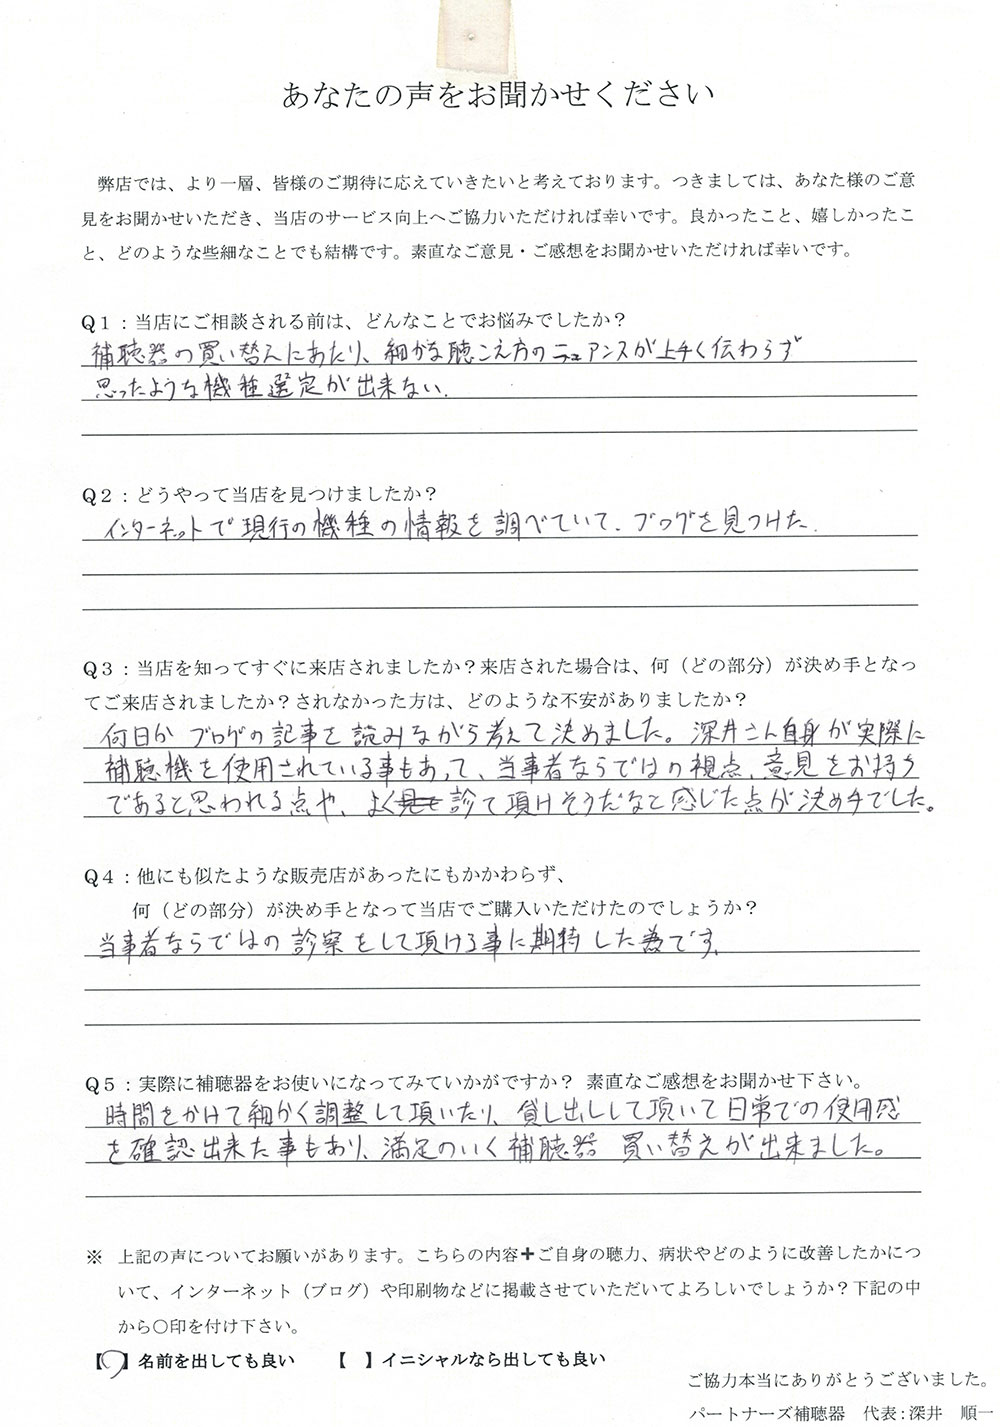 あなたの声をお聞かせください
弊店では、より一層、皆様のご期待に応えていきたいと考えております。つきましては、あなた様のご意
見をお聞かせいただき、当店のサービス向上へご協力いただければ幸いです。良かったこと、嬉しかったこ
と、どのような些細なことでも結構です。素直なご意見・ご感想をお聞かせいただければ幸いです。
Q1：当店にご相談される前は、どんなことでお悩みでしたか？
補聴器の買い替えにあたり、細かな聴こえ方のニュアンスが上手く伝わらず
思ったような機種選定が出来ない.
Q2：どうやって当店を見つけましたか？
インターネットで現行の機種の情報を調べていて、ブログを見つけた.
Q3：当店を知ってすぐに来店されましたか？来店された場合は、何（どの部分）が決め手となっ
てご来店されましたか？されなかった方は、どのような不安がありましたか？
何日かブログの記事を読みながら考えて決めました。深井さん自身が実際に
補聴機を使用されている事もあって、当事者ならではの視点、意見をお持ち
であると思われる点や、よく診て頂けそうだなと感じた点が決め手でした。
Q4：他にも似たような販売店があったにもかかわらず、
何（どの部分）が決め手となって当店でご購入いただけたのでしょうか？
当事者ならではの診察をして頂ける事に期待した為です.
Q5：実際に補聴器をお使いになってみていかがですか？ 素直なご感想をお聞かせ下さい。
時間をかけて細かく調整して頂いたり、貸し出しして頂いて日常での使用感
を確認出来た事もあり、満足のいく補聴器 買い替えが出来ました。
※ 上記の声についてお願いがあります。こちらの内容＋ご自身の聴力、病状やどのように改善したかにつ
いて、インターネット（ブログ）や印刷物などに掲載させていただいてよろしいでしょうか？下記の中
から〇印を付け下さい。
【〇】名前を出しても良い 【 】イニシャルなら出しても良い
ご協力本当にありがとうございました。
パートナーズ補聴器 代表：深井 順一